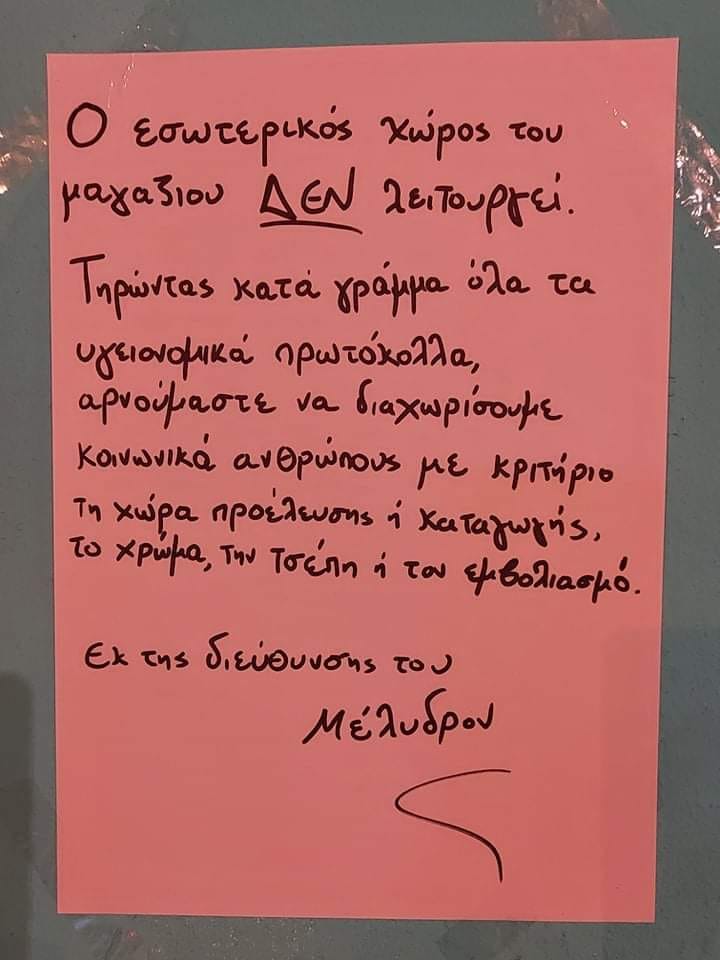 Ο εσωτερικός χώρος του
μαγαζιου ΔΕΝ λειτουργεί.
Τηρώντας κατά γράμμα όλα τα
υγειονομικά πρωτόκολλα,
αρνούμαστε να διαχωρίσουμε
κοινωνικά ανθρώπους με κριτήριο
τη χώρα προέλευσης ή καταγωγής,
το χρώμα, την τσέπη ή τον εμβολιασμό.
Εκ της διεύθυνσης του
Μέλυδρον